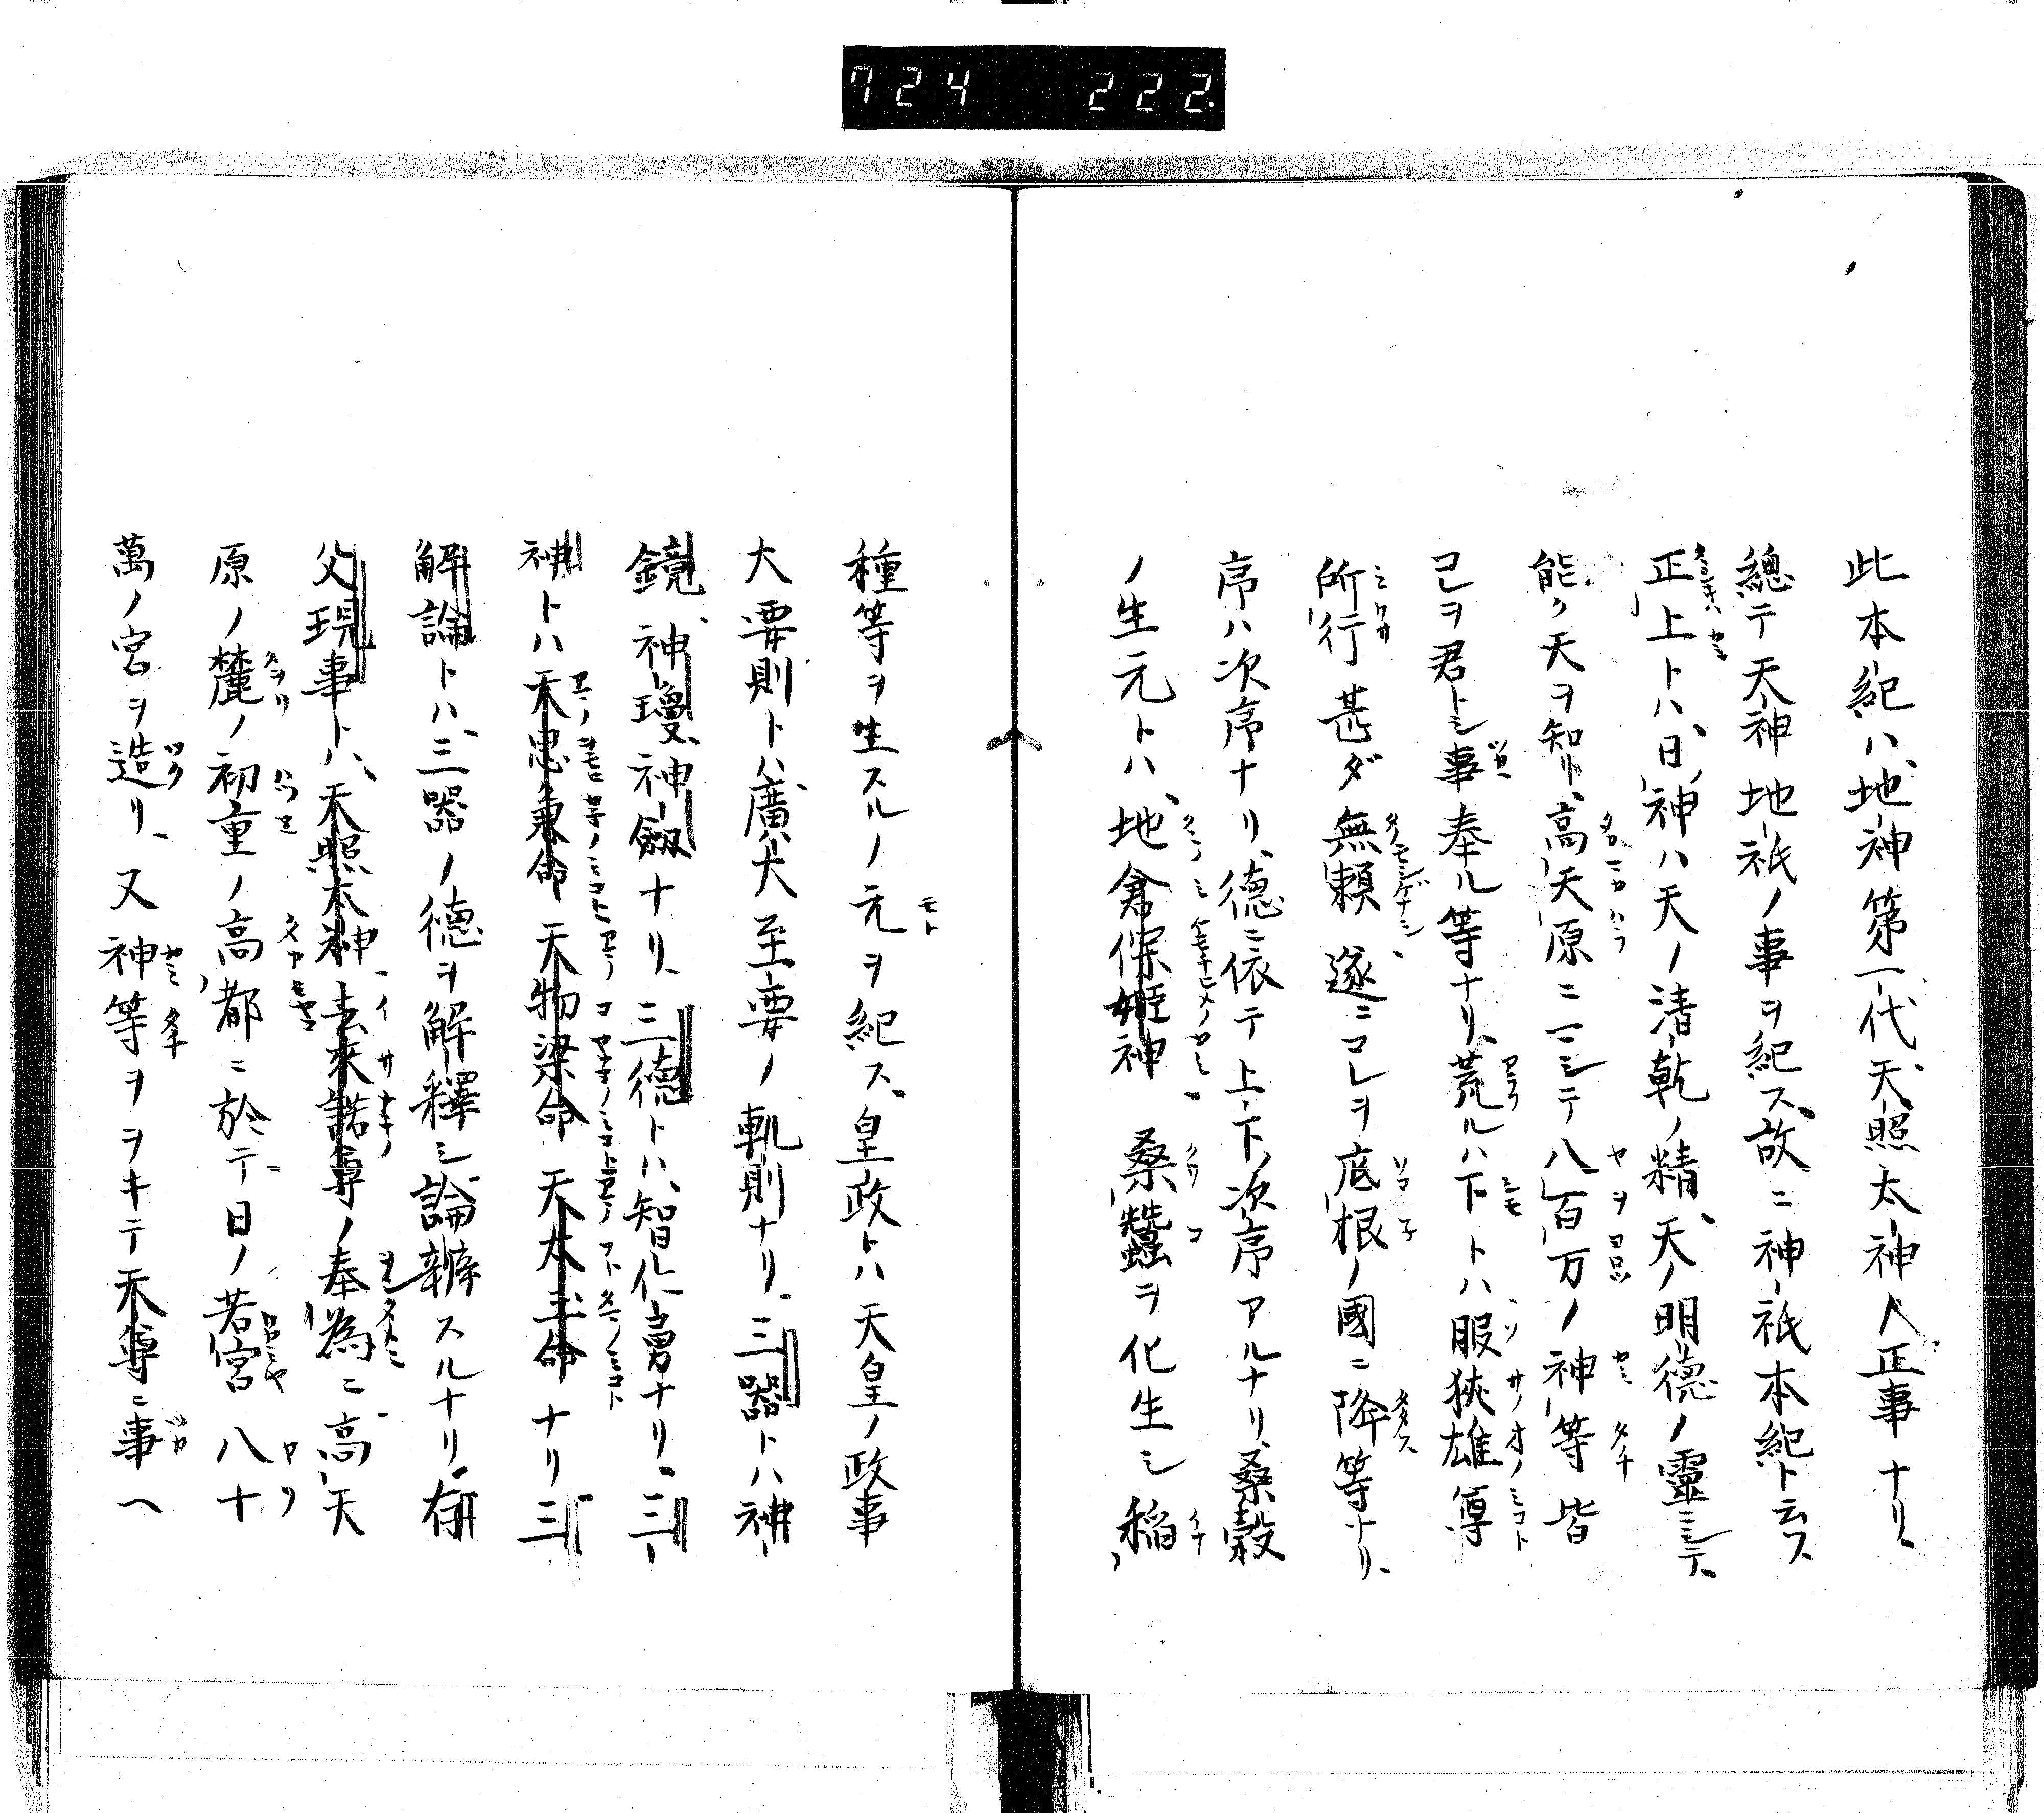 724 222.
此本紀ハ地神第一代天照太神ノ正事ナリ
總テ天神地祇ノ事ヲ紀ス故ニ神祇本紀ト云ス
正上トハ日神ハ天ノ清乾ノ精天ノ明德ノ靈ニシテ
能ク天ヲ知リ高天原ニ一ニシテ八百万ノ神等皆
己ヲ君トシ事奉ル等ナリ荒ルハ下トハ服狹雄尊
所行甚ダ無賴遂ニコレヲ底根ノ國ニ降等ナリ
序ハ次序ナリ德ニ依テ上下次序アルナリ桑穀
ノ生元トハ地倉保姬神桑蠶ヲ化生シ稲
種等ヲ生スルノ元ヲ紀ス皇政トハ天皇ノ政事
大要則トハ廣大至要ノ軌則ナリ三器トハ神
鏡神瓊神劔ナリ三德トハ智仁勇ナリ三
神トハ天思兼命天物梁命天太玉命ナリ三
解論トハ三器ノ德ヲ解釋シ論辨スルナリ有
父現事トハ天照太神去來諾尊ノ奉為ニ高天
原ノ麓ノ初重ノ高都ニ於テ日ノ若宮八十
萬ノ宮ヲ造リ又神等ヲヲキテ天尊ニ事ヘ